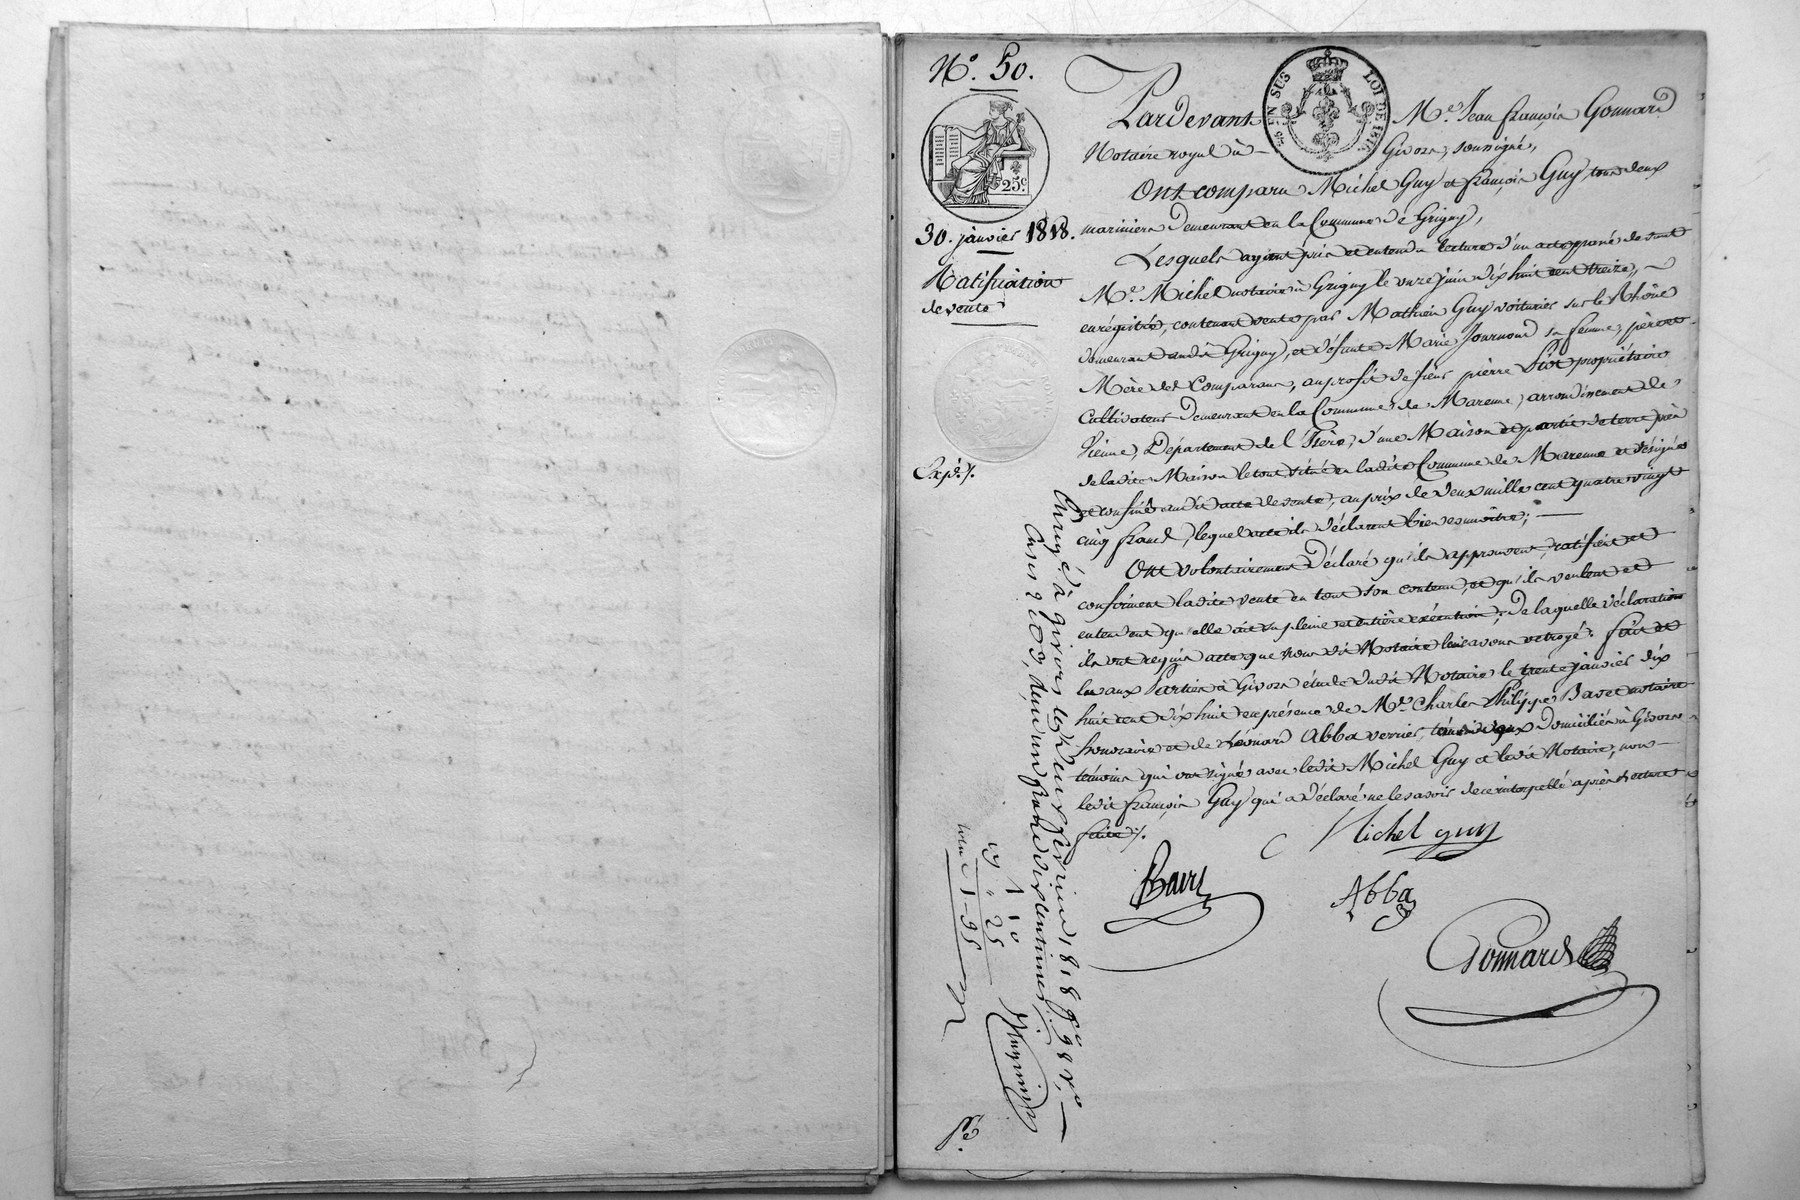 N.° 50.
EN SUS
LOI DE 1816
25c
30. janvier 1818.
Ratification
de vente
Expé. /.
Pardevant M.e Jean françois Gonnard
Notaire royal à Givors, soussigné,
Ont comparu Michel Guy et françois Guy, tous deux
mariniers demeurant en la Commune de Grigny,
Lesquels ayant pris et entendu lecture d'un acte passé devant
M.e Michel notaire à Grigny le onze juin dix huit cent treize,
enrégistré, contenant vente par Mathieu Guy voiturier sur le Rhône
demeurant audit Grigny, et défunte Marie Journoud sa femme, père et
Mère des Comparans, au profit de sieur pierre propriétaire
Cultivateur demeurant en la Commune de Marenne, arrondissement de
Vienne, Département de l'Isère, d'une Maison et partie de terre près
de ladite Maison le tout situé en ladite Commune de Marenne et désigné
et confiné audit acte de vente, au prix de deux mille cent quatre vingt
cinq francs, lequel acte ils déclarent bien connoître;
Ont volontairement Déclaré qu'ils approuvent, ratifient et
confirment ladite vente en tout son contenu, et qu'ils veulent et
entendent qu'elle ait sa pleine et entière exécution; De laquelle déclaration
ils ont requis acte que nous dit Notaire leur avons octroyé. fait et
lu aux Parties à Givors étude dudit Notaire le trente janvier dix
huit cent dix huit en présence de M.e Charles Philippe Bavet notaire
honoraire et de Léonard Abba verrier, domiciliés à Givors
témoins qui ont signé avec ledit Michel Guy et ledit Notaire, non
ledit françois Guy qui a déclaré ne le savoir de ce interpellé après lecture
faite /.
Michel guy
Abba
Gonnard
Enregé à givors le 1818 f.o 98 v.o
Case 2 reçu un franc dix centimes.
1 10
" 25